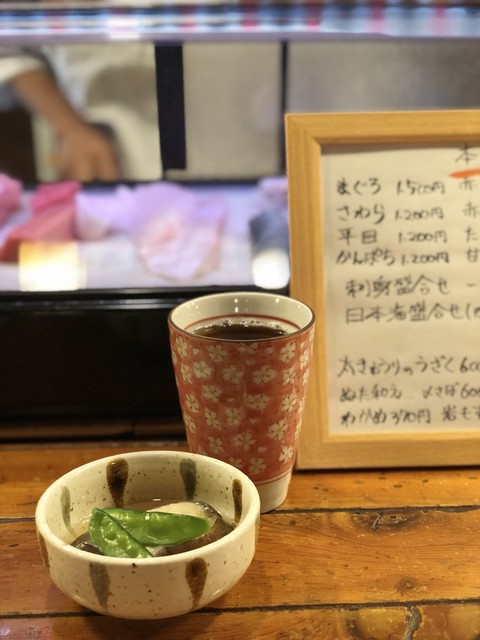 本
まぐろ 1.500円 赤
さわら 1.200円 赤
平目 1.200円 た
かんぱち 1.200円 甘
刺身盛合せ
日本海盛合せ(
太きゅうりのうざく 600
ぬた和え 〆さば 600
わかめ 370円 岩も